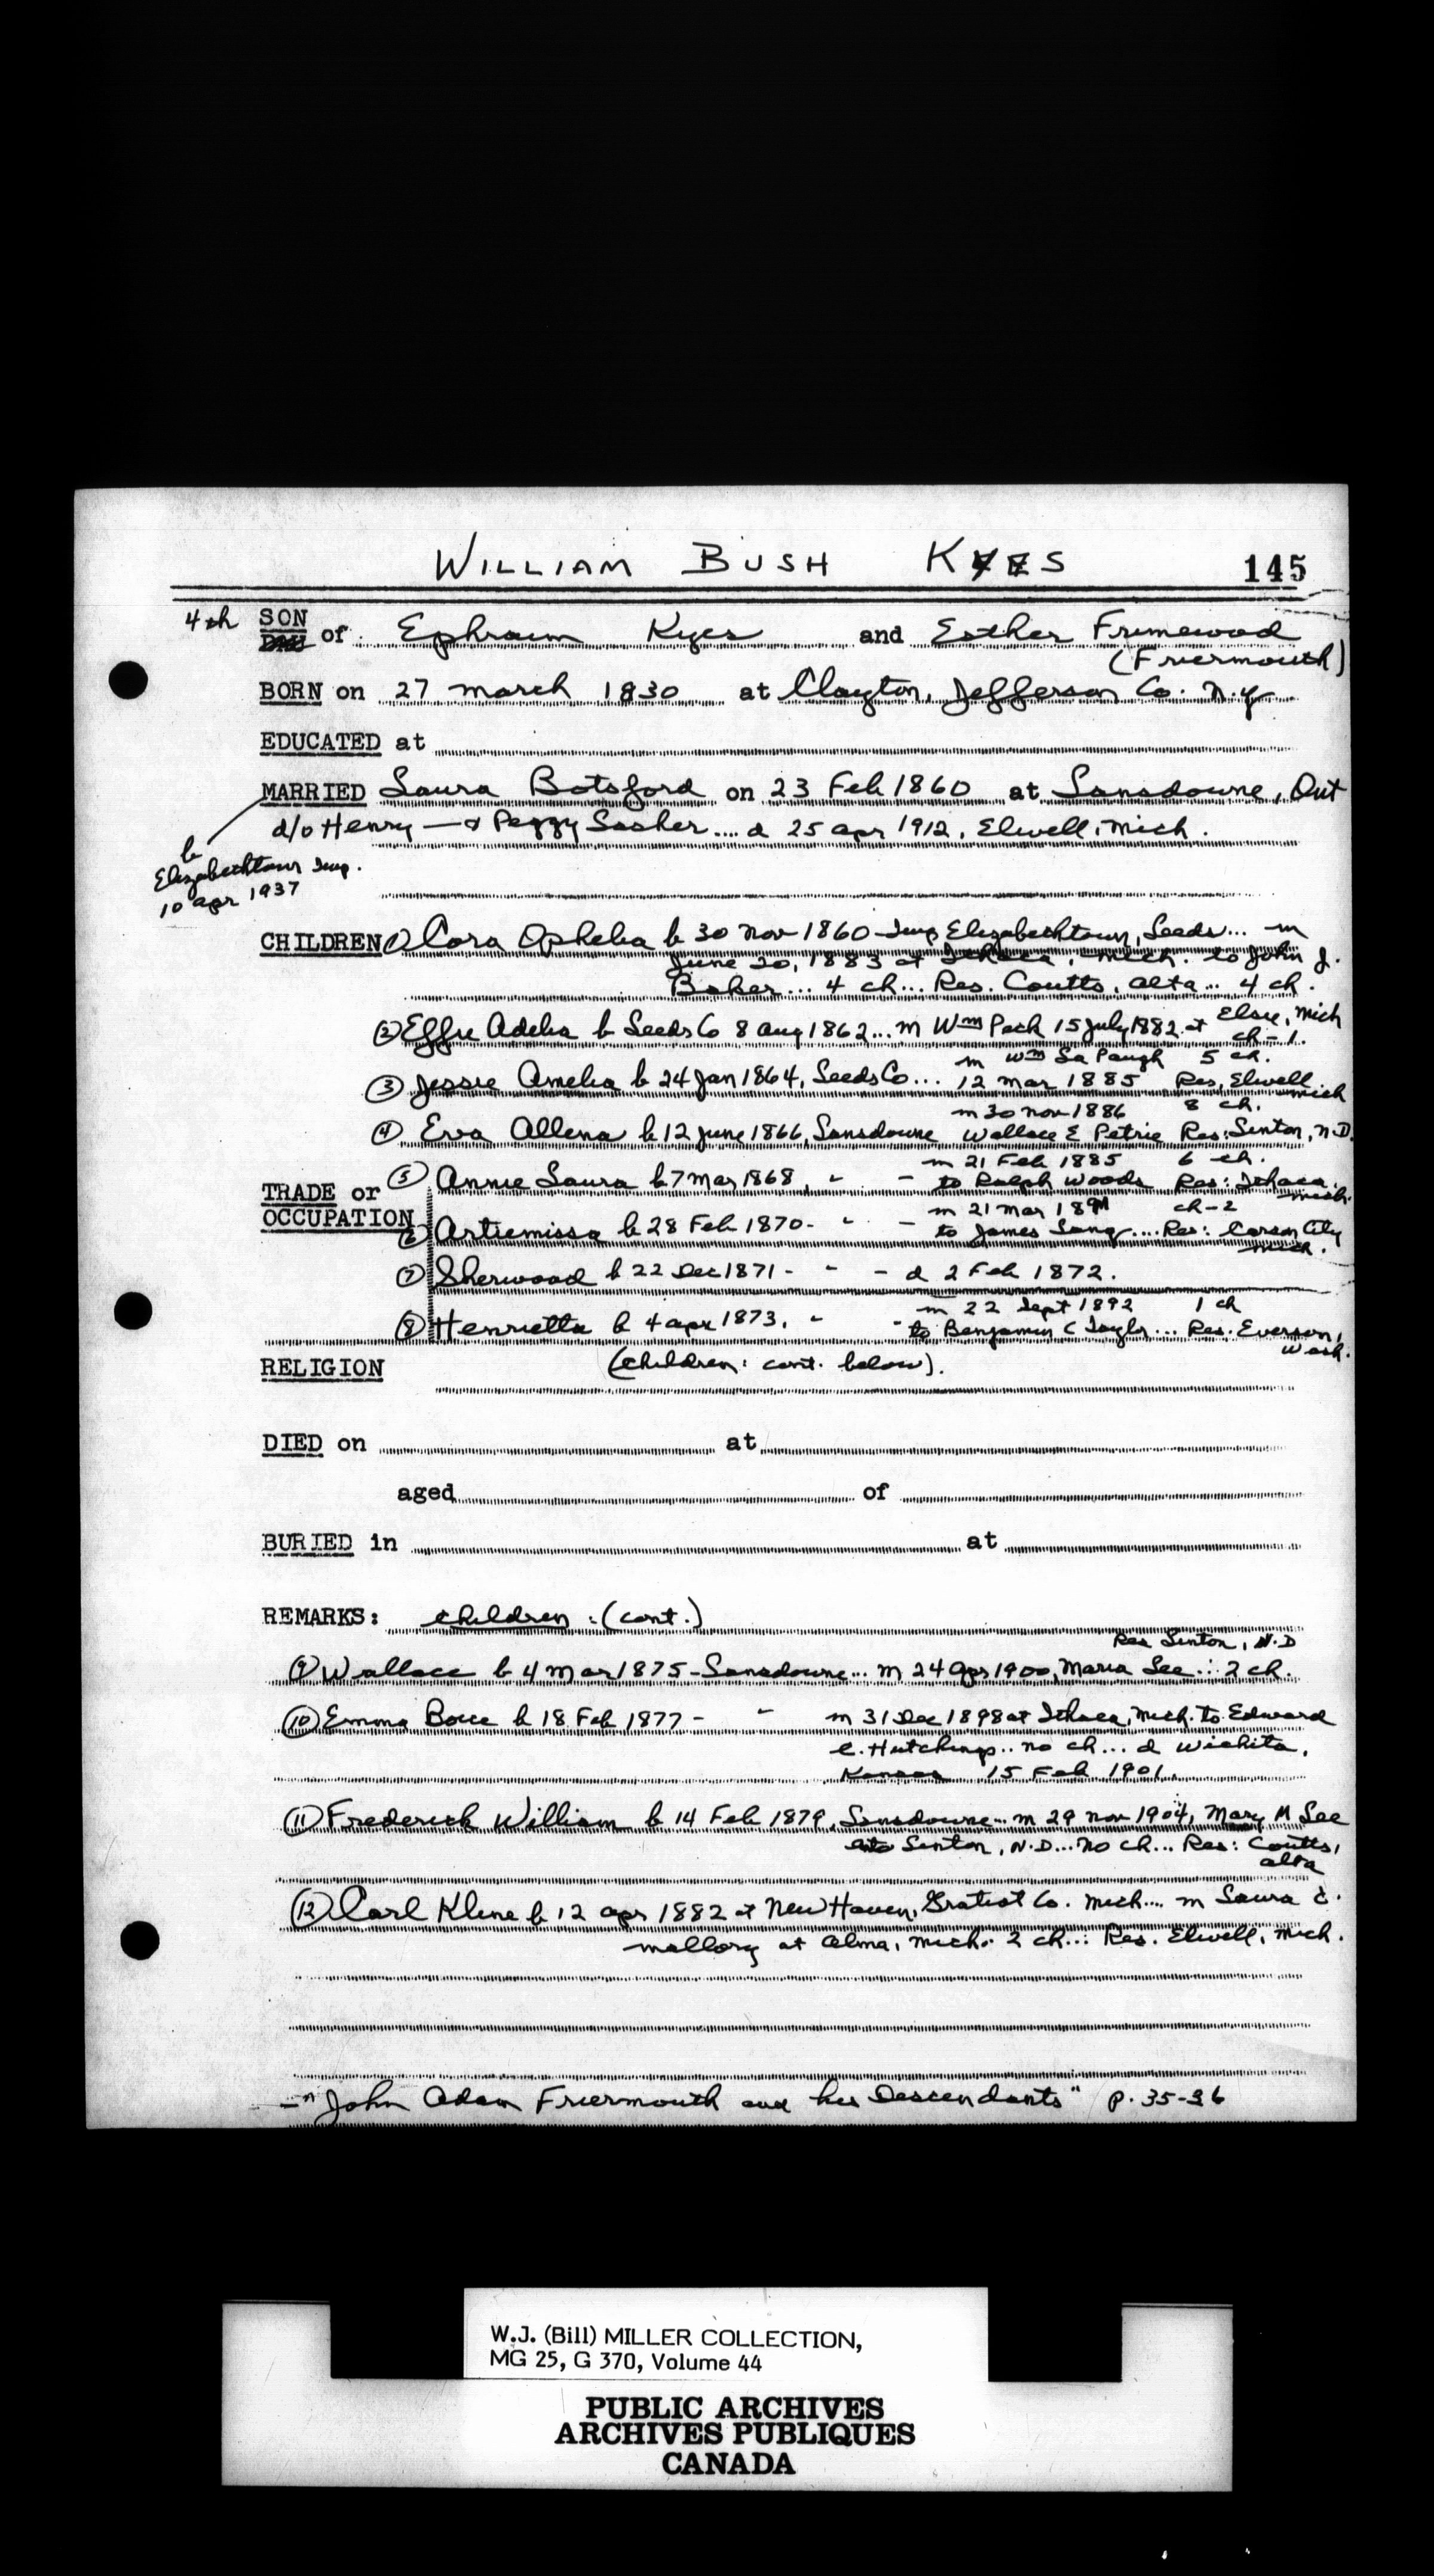 WILLIAM BUSH KYES 145
4th SON of Ephraim Kyes and Esther Frimewood
(Friermouth)
BORN on 27 march 1830 at Clayton, Jefferson Co. N.Y
EDUCATED at
MARRIED Laura Botsford on 23 Feb 1860 at Lansdowne, Ont
d/o Henry — & Peggy Losher.... d 25 apr 1912, Elwell, Mich.
b
Elizabethtown Twp.
10 apr 1937
CHILDREN ① Cora Ophelia b 30 Nov 1860 Twp Elizabethtown, Leeds... m
June 20, 1883 at Ithaca, Mich. to John J.
Baker... 4 ch... Res. Coutts, Alta... 4 ch.
② Effie Adelia b Leeds Co 8 Aug 1862... m Wm Pack 15 July 1882 at Elsie, Mich
ch-1.
m Wm La Paugh 5 ch.
③ Jessie Amelia b 24 Jan 1864, Leeds Co... 12 Mar 1885 Res, Elwell Mich
m 30 Nov 1886 8 ch.
④ Eva Allena b 12 June 1866, Lansdowne Wallace E Petrie Res: Linton, N.D.
m 21 Feb 1885 6 ch.
⑤ Annie Laura b 7 Mar 1868, " - to Ralph Woods Res: Ithaca. Mich.
TRADE or
OCCUPATION
m 21 Mar 1891 ch-2
⑥ Artiemissa b 28 Feb 1870 - " - to James Lang.... Res: Carson City Mich.
⑦ Sherwood b 22 Dec 1871 - " - d 2 Feb 1872.
m 22 Sept 1892 1 ch
⑧ Henrietta b 4 apr 1873, " - to Benjamin C Taylor... Res. Everson, Wash.
RELIGION (children: cont. below).
DIED on at
aged of
BURIED in at
REMARKS: children: (cont.)
Res Linton, N.D
⑨ Wallace b 4 Mar 1875 - Lansdowne... m 24 Apr 1900, Maria Lee... 2 ch.
⑩ Emma Bouce b 18 Feb 1877 - " m 31 Dec 1898 at Ithaca, Mich. to Edward
E. Hutchings.. no ch... d Wichita,
Kansas 15 Feb 1901.
⑪ Frederick William b 14 Feb 1879, Lansdowne... m 29 Nov 1904, Mary M Lee
Linton, N.D... no ch... Res: Coutts,
alta
⑫ Carl Kline b 12 apr 1882 at New Haven, Gratiot Co. Mich.... m Laura E.
Mallory at Alma, Mich. 2 ch... Res. Elwell, Mich.
- "John Adam Friermouth and his Descendants" p. 35-36
W.J. (Bill) MILLER COLLECTION,
MG 25, G 370, Volume 44
PUBLIC ARCHIVES
ARCHIVES PUBLIQUES
CANADA